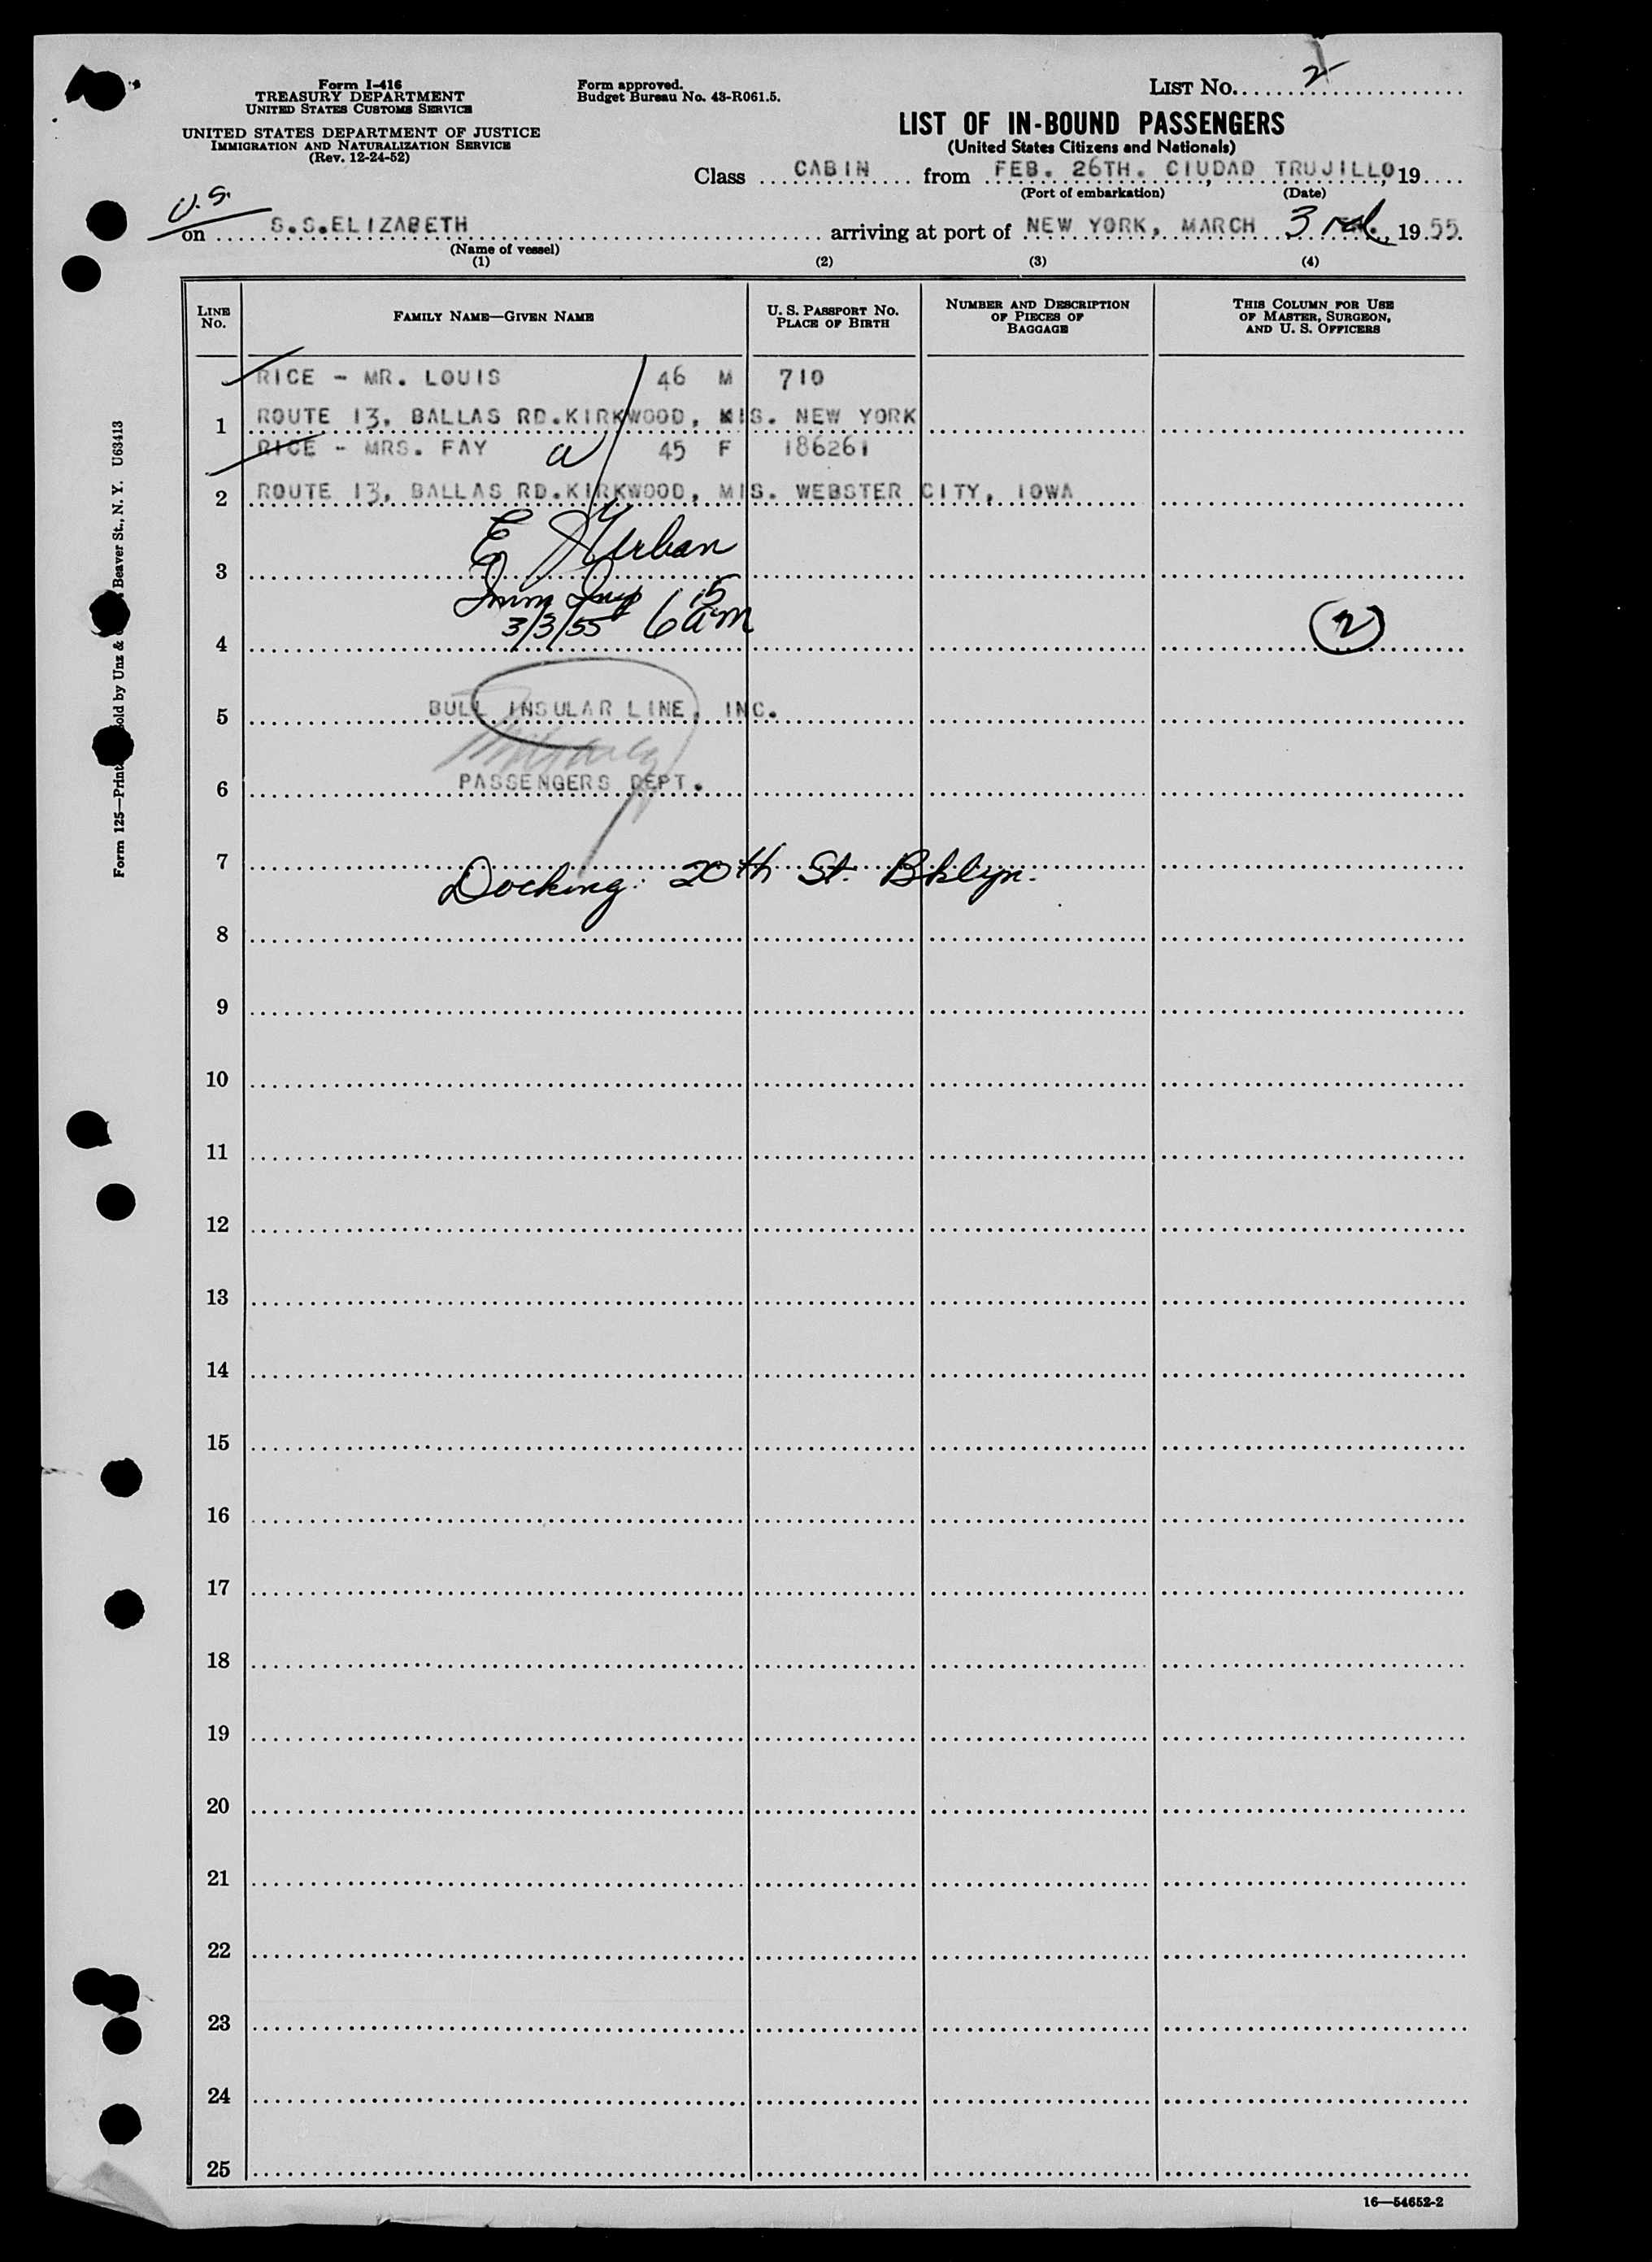 Form I-416
TREASURY DEPARTMENT
UNITED STATES CUSTOMS SERVICE
UNITED STATES DEPARTMENT OF JUSTICE
IMMIGRATION AND NATURALIZATION SERVICE
(Rev. 12-24-52)
Form approved.
Budget Bureau No. 43-R061.5.
LIST No. 2
LIST OF IN-BOUND PASSENGERS
(United States Citizens and Nationals)
Class CABIN from FEB. 26TH. CIUDAD TRUJILLO, 19
(Port of embarkation) (Date)
U.S.
on S.S.ELIZABETH arriving at port of NEW YORK, MARCH 3rd, 1955.
(Name of vessel)
(1) (2) (3) (4)
LINE No. FAMILY NAME—GIVEN NAME U. S. PASSPORT No. PLACE OF BIRTH NUMBER AND DESCRIPTION OF PIECES OF BAGGAGE THIS COLUMN FOR USE OF MASTER, SURGEON, AND U. S. OFFICERS
RICE - MR. LOUIS 46 M 710
1 ROUTE 13, BALLAS RD.KIRKWOOD, MIS. NEW YORK
RICE - MRS. FAY 45 F 186261
2 ROUTE 13, BALLAS RD.KIRKWOOD, MIS. WEBSTER CITY, IOWA
E Urban
3
Imm Insp 6 15 am
3/3/55
4 2
5 BULL INSULAR LINE, INC.
6 PASSENGERS DEPT.
7
Docking: 20th St. Bklyn.
8
9
10
11
12
13
14
15
16
17
18
19
20
21
22
23
24
25
16—54652-2
Form 125—Print old by Unz & Beaver St., N. Y. U63413